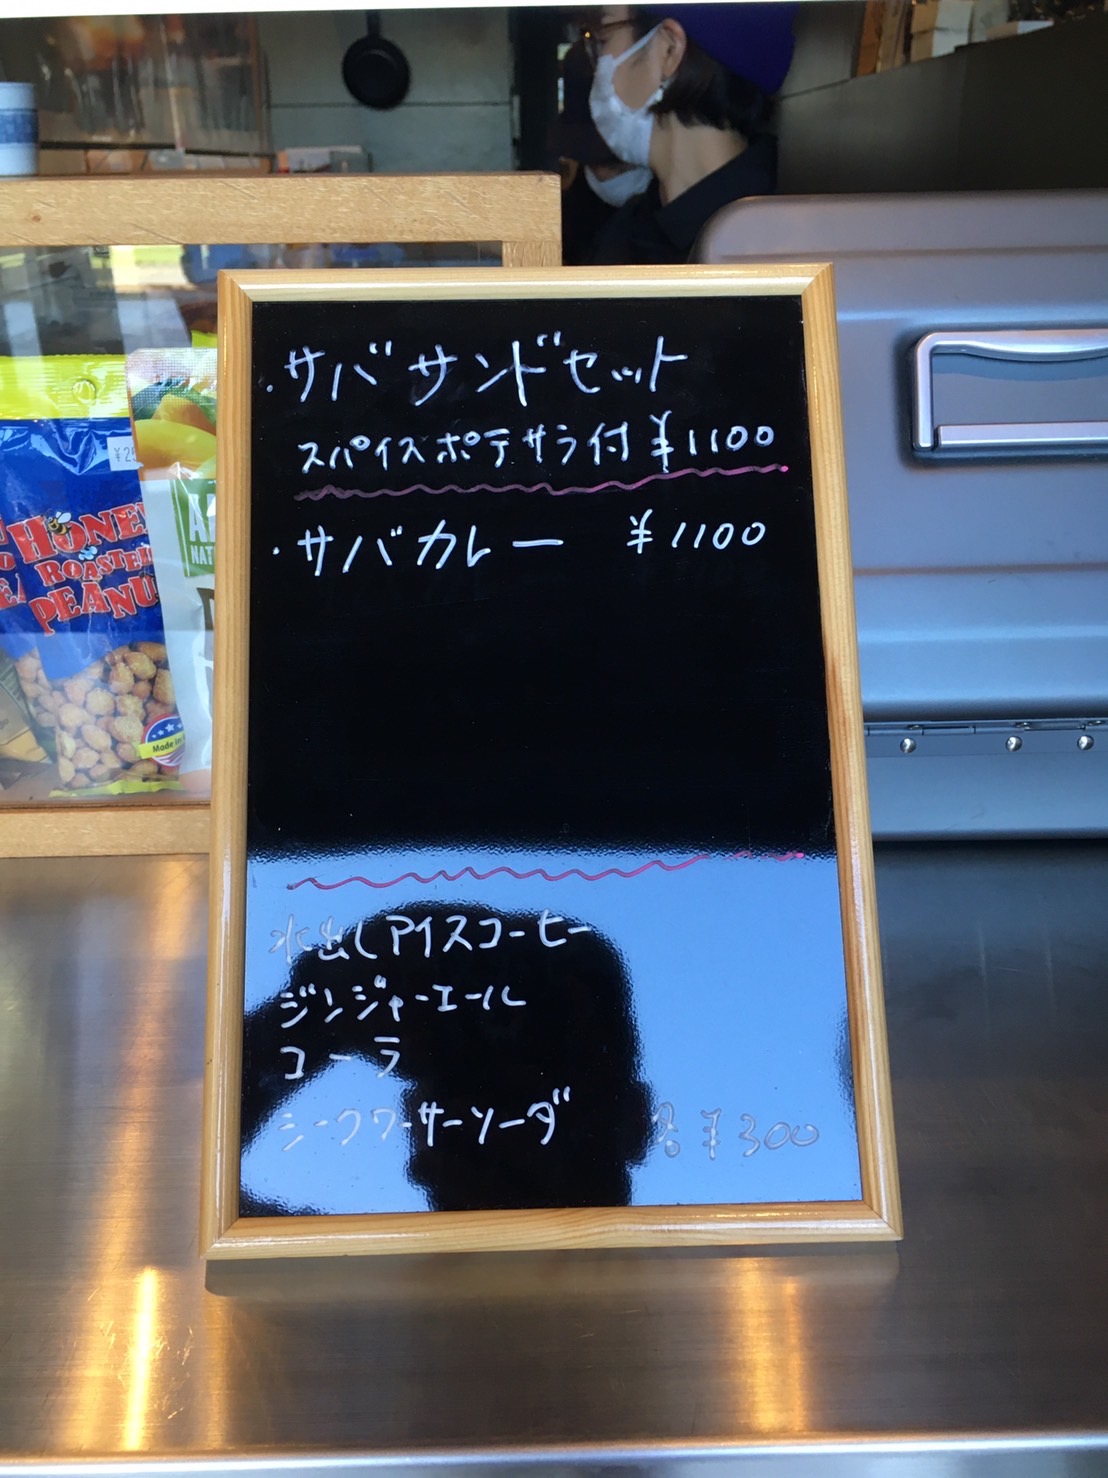 ・サバサンドセット
スパイスポテサラ付 ¥1100
・サバカレー ¥1100
水出しアイスコーヒー
ジンジャーエール
コーラ
シークワーサーソーダ 各¥300
HONEY
ROASTED
PEANU
Made in
NAT